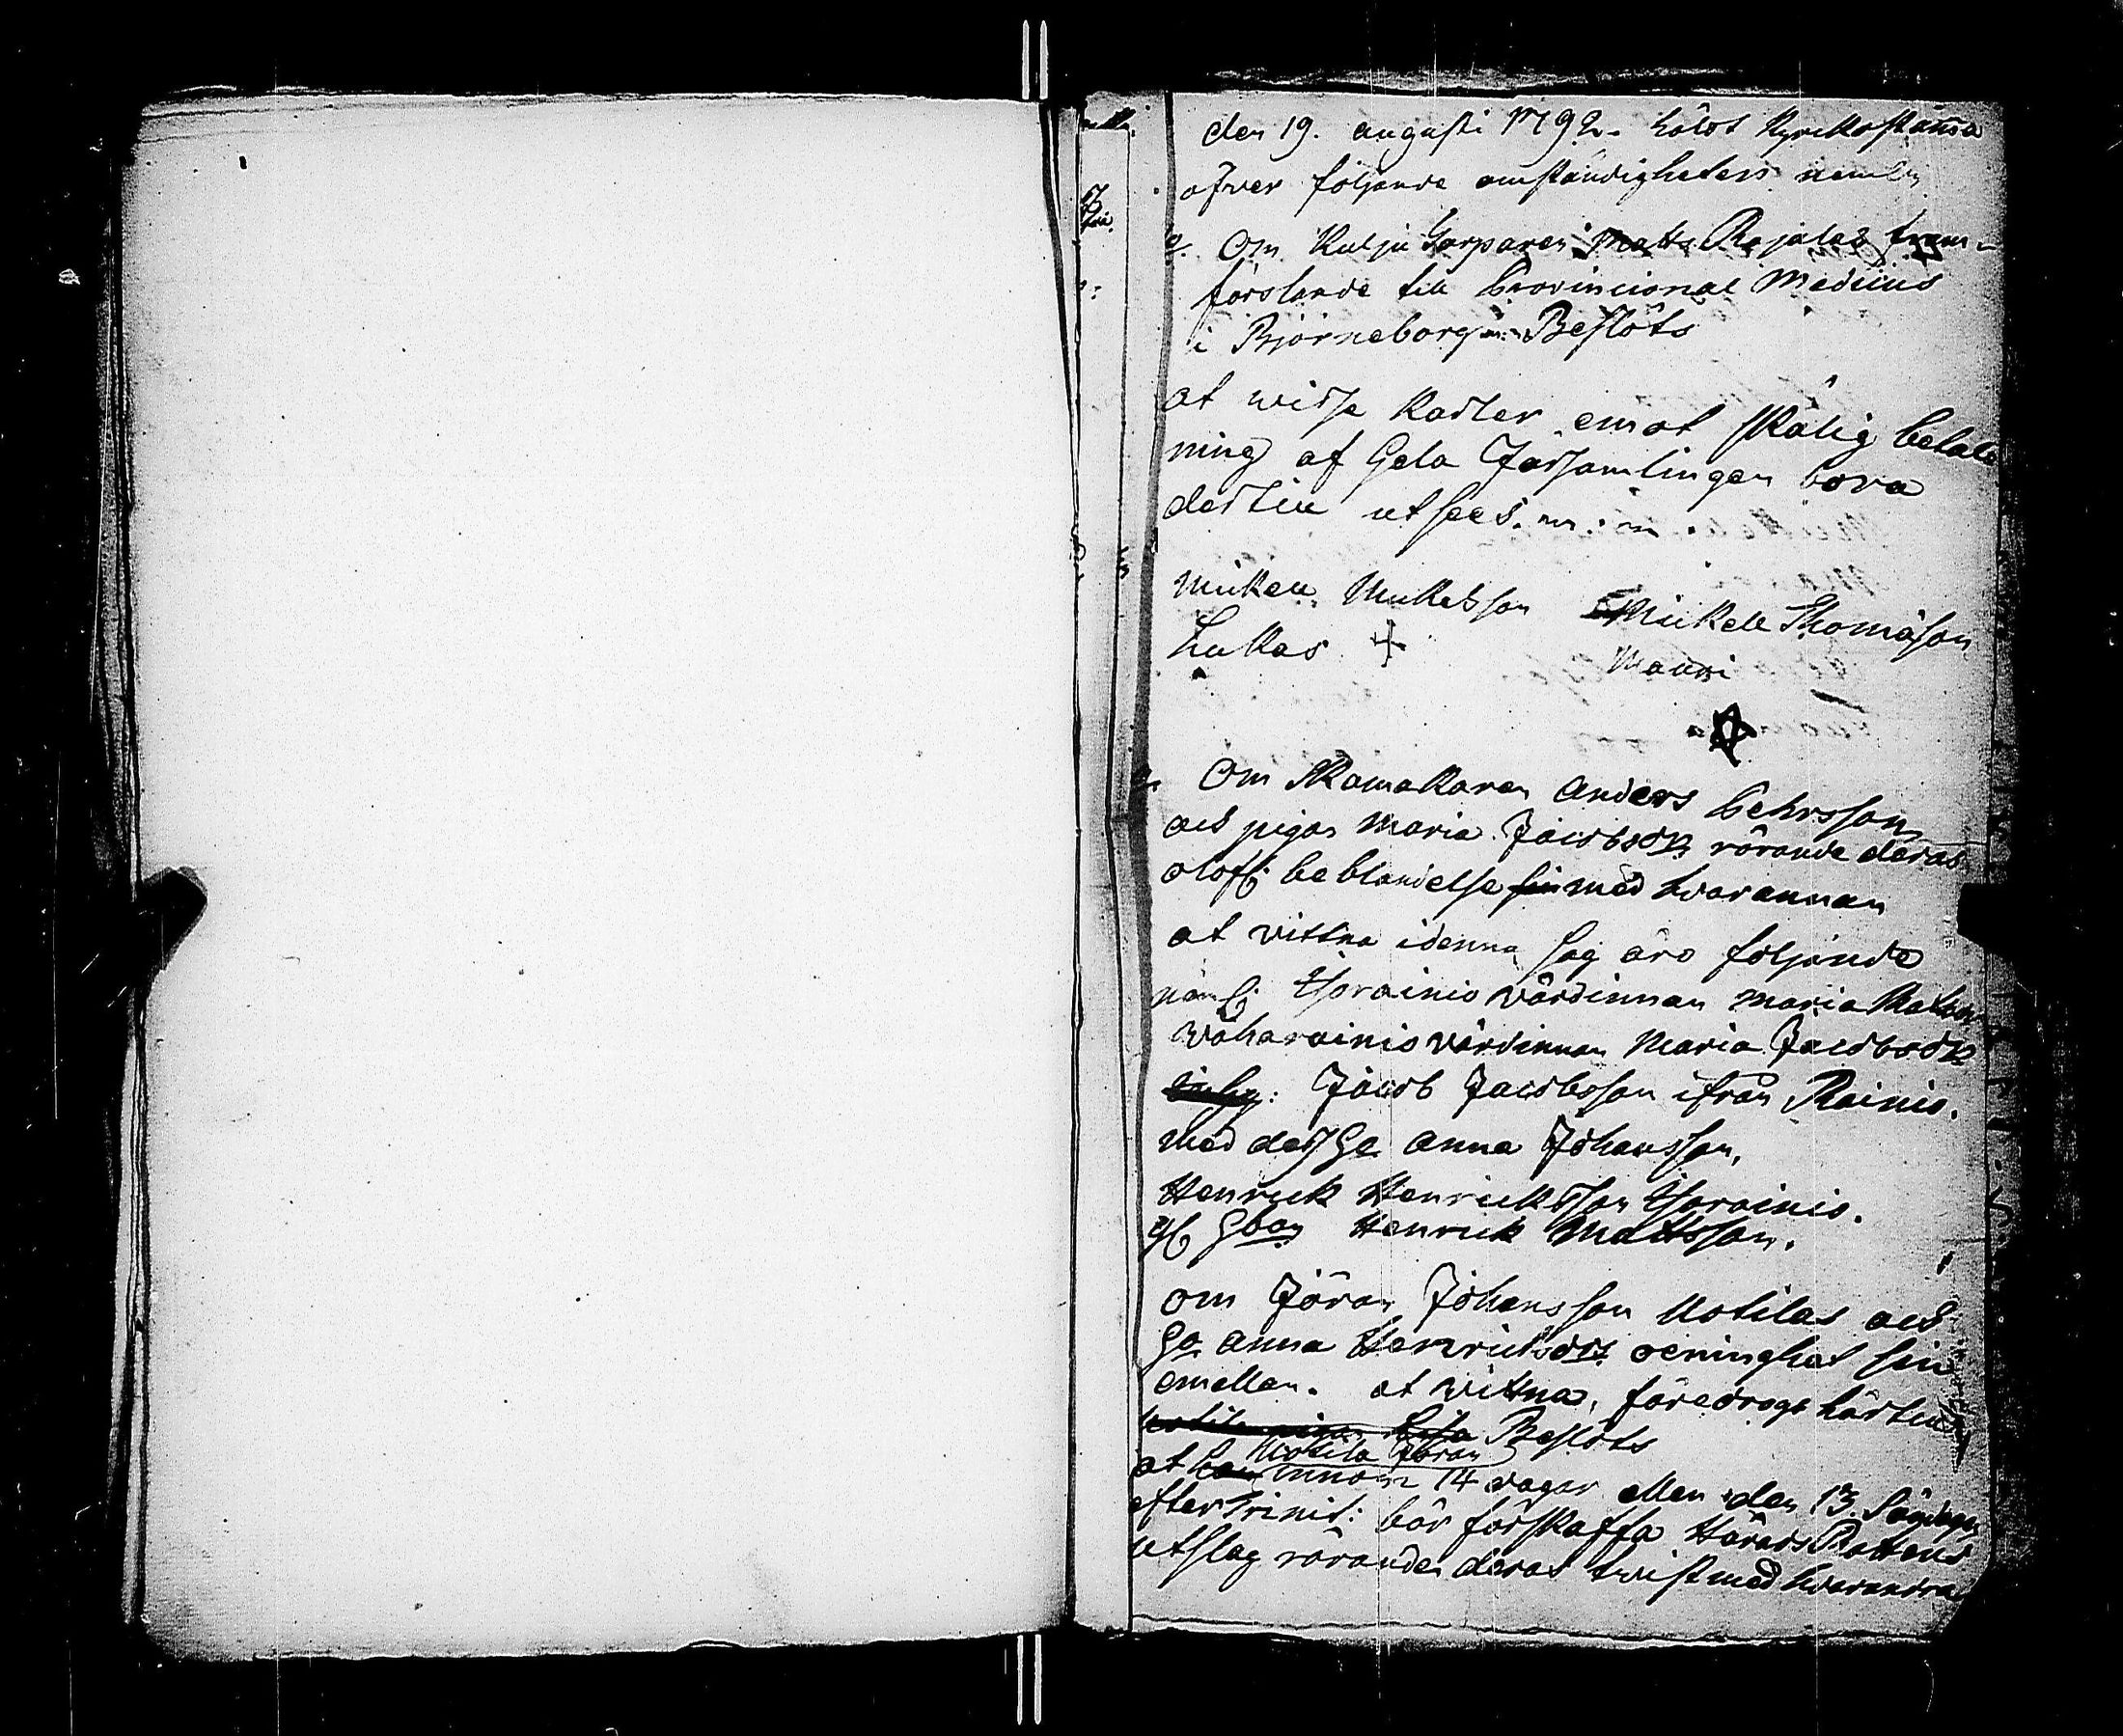 den 19. augusti 1792. hölds kyrckostämma
öfver följande omständigheter nemln
Om Kulju Torparen Matts Rajalas fram-
förslande till Provincional Medicus
i Björneborg. Beslöts
at wisse Karlar emot skälig betal
ning af hela Församlingen böra
dertill utsees.
Mickell Mickelsson Mickell Thomasson
Lukas + Mauri
Om Skomakaren Anders Pehrsson
och pigan Maria Jacobsdr rörande deras
olofl: beblandelse med hvarannan
at vittna i denna sag äro följande
näml: Isorainio värdinnan Maria
Wäharainio värdinnan Maria Jacobsdr
Jacob Jacobsson ifrån Rainio.
med dess h. Anna Johansson,
Henrick Henricksson Isorainio.
Henrick Mattsson.
om Jöran Johansson Uotilas och
h. Anna Henricksdrs oenighet sin
emellan. at vittna, föredrogs härtill
Beslöts
Uotila Jöran
at innom 14 dagar eller den 13. Söndagen
efter Trinit: bör förskaffa HäradsRättens
utslag rörande deras twist med hwarandra